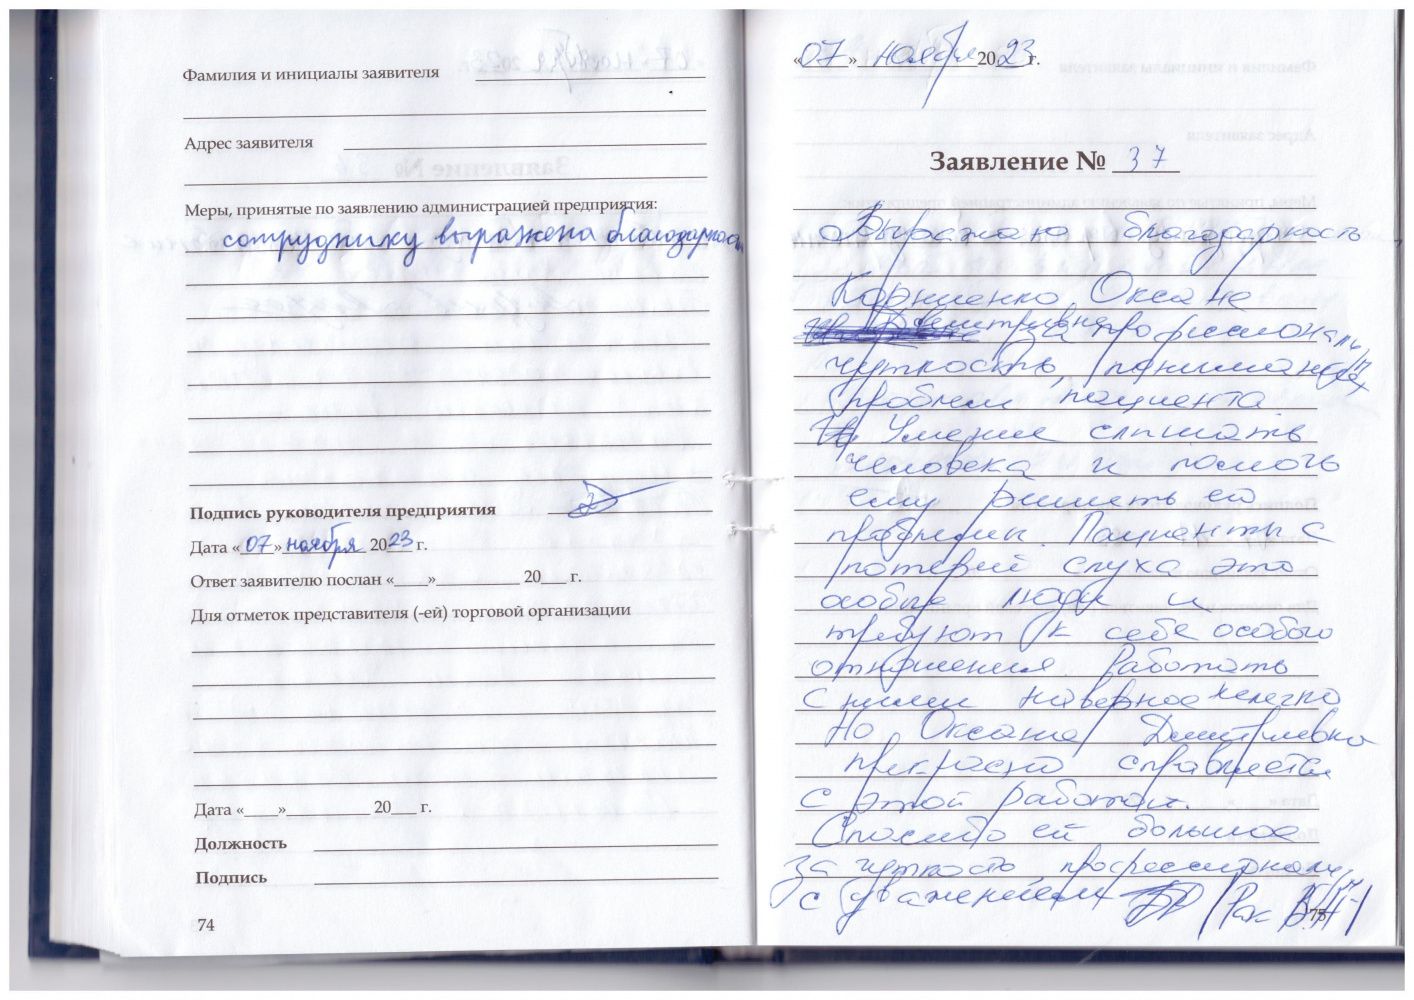 Фамилия и инициалы заявителя
Адрес заявителя
Меры, принятые по заявлению администрацией предприятия:
сотруднику выражена благодарность
Подпись руководителя предприятия
Дата «07» ноября 2023 г.
Ответ заявителю послан «___» ________ 20___ г.
Для отметок представителя (-ей) торговой организации
Дата «___» ________ 20___ г.
Должность
Подпись
74
«07» ноября 2023 г.
Заявление № 37
Выражаю благодарность
Корниенко Оксане
Дмитриевне за профессионализм
чуткость, понимание
проблем пациента
Умение слышать
человека и помочь
ему решить его
проблемы. Пациенты с
потерей слуха это
особые люди и
требуют к себе особого
отношения. Работать
с ними наверное нелегко
Но Оксана Дмитриевна
прекрасно справляется
с этой работой.
Спасибо ей большое
за чуткость, профессионализм
с уважением /Рак В.
75